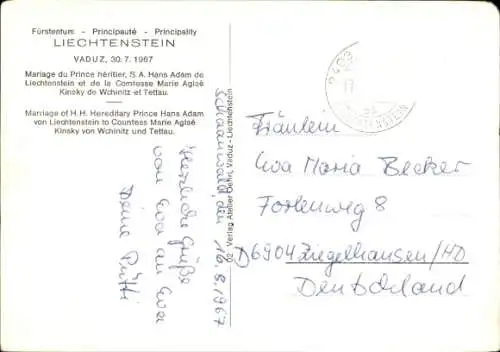 Fürstentum - Principauté - Principality
LIECHTENSTEIN
VADUZ, 30. 7. 1967
Mariage du Prince héritier, S. A. Hans Adam de
Liechtenstein et de la Comtesse Marie Aglaë
Kinsky de Wchinitz et Tettau.
Marriage of H. H. Hereditary Prince Hans Adam
von Liechtenstein to Countess Marie Aglaë
Kinsky von Wchinitz und Tettau.
Schaanwald, den 16.8.1967
Herzliche Grüße
von Ewa an Ewa
Deine Putti
Verlag Atelier Vaduz - Liechtenstein
Fräulein
Ewa Maria Becker
Forlenweg 8
D6904 Ziegelhausen/HD
Deutschland